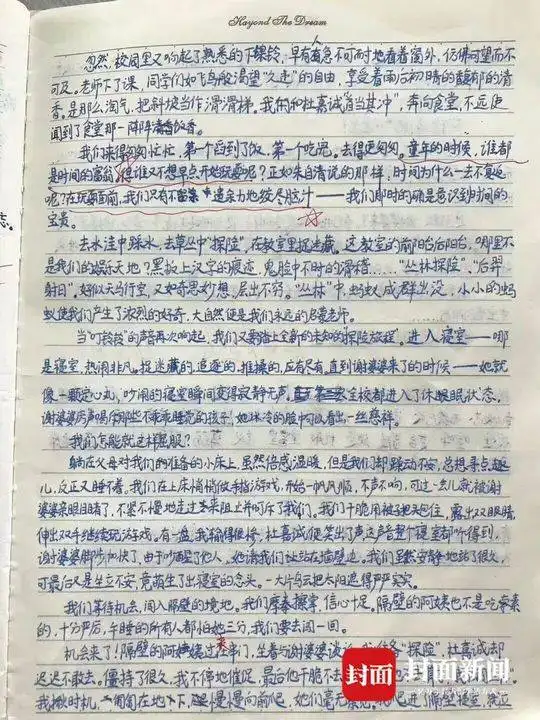 Hayond The Dream
忽然,校园里又响起了熟悉的下课铃,早有人急不可耐地看着窗外,仿佛可望而不
可及。老师下了课,同学们如飞鸟般渴望“久违”的自由,享受着雨后初晴的馥郁的清
香。是那么淘气,把斜坡当作滑滑梯。我们和杜嘉诚“首当其冲”,奔向食堂,不远便
闻到了食堂那一阵阵清香饭香。
我们来得匆匆忙忙,第一个舀到了饭,第一个吃完。去得更匆匆。童年的时候,谁都
是时间的富翁,但谁又不想早点开始玩耍呢?正如朱自清说的那样,时间为什么一去不复返
呢?在玩耍面前,我们只有不留余遗余力地绞尽脑汁——我们那时的确是意识到时间的
宝贵。
去水洼中踩水,去草丛中“探险”,在教室里捉迷藏。这教室的前阳台后阳台,哪里不
是我们的娱乐天地?黑板上汉字的痕迹,鬼脸中不时的滑稽……“丛林探险”、“后羿
射日”。好似天马行空,又如奇思妙想,层出不穷。“丛林”中,蚂蚁成群出没,小小的蚂
蚁使我们产生了浓烈的好奇,大自然便是我们永远的启蒙老师。
当“叮铃铃”的声音再次响起,我们又要踏上全新的未知的“探险旅程”。进入寝室——哪
是寝室,热闹非凡。捉迷藏的,追逐的,推搡的,应有尽有。直到谢婆婆来了的时候——她就
像一颗定心丸,吵闹的寝室瞬间变得寂静无声。全校都进入了休眠眠状态,
谢婆婆厉声喝住那些不乖乖睡觉的孩子,她冰冷的脸中似看出一丝慈祥。
我们怎能就这样屈服?
躺在父母对我们的准备的小床上,虽然倍感温暖,但是我们却躁动不安,总想寻点趣
儿,反正又睡不着。我们在上床悄悄做手指游戏,开始一帆风顺,不声不响,可过一会儿就被谢
婆婆亲眼目睹了,不紧不慢地走过来跟上并呵斥了我们。我们干脆用被子把头包住,露出双眼睛,
伸出双手继续玩游戏。有一盘,我输得很惨,杜嘉诚便笑出了声,这声音整个寝室都听得到,
谢婆婆脚步加快了,由于吵醒了他人,她请我们上站在墙壁边。我们虽然安静地站了很久,
可最后又是坐立不安,竟萌生了出寝室的念头。一大片乌云把太阳遮得严严实实。
我们等待机会,闯入隔壁的境地。我们摩拳擦掌,信心十足。隔壁的阿姨也不是吃素
的,十分严厉,午睡的所有人都怕她三分,我们要去闯一闯。
机会来了!隔壁的阿姨过来串门,坐着与谢婆婆“探险”,杜嘉诚却
迟迟不敢去。僵持了很久,我不停地催促,最后他干脆不去
我瞅时机,匍匐在地下,慢慢向前爬,她们毫无察觉。我爬进了隔壁寝室,就应
封面 封面新闻